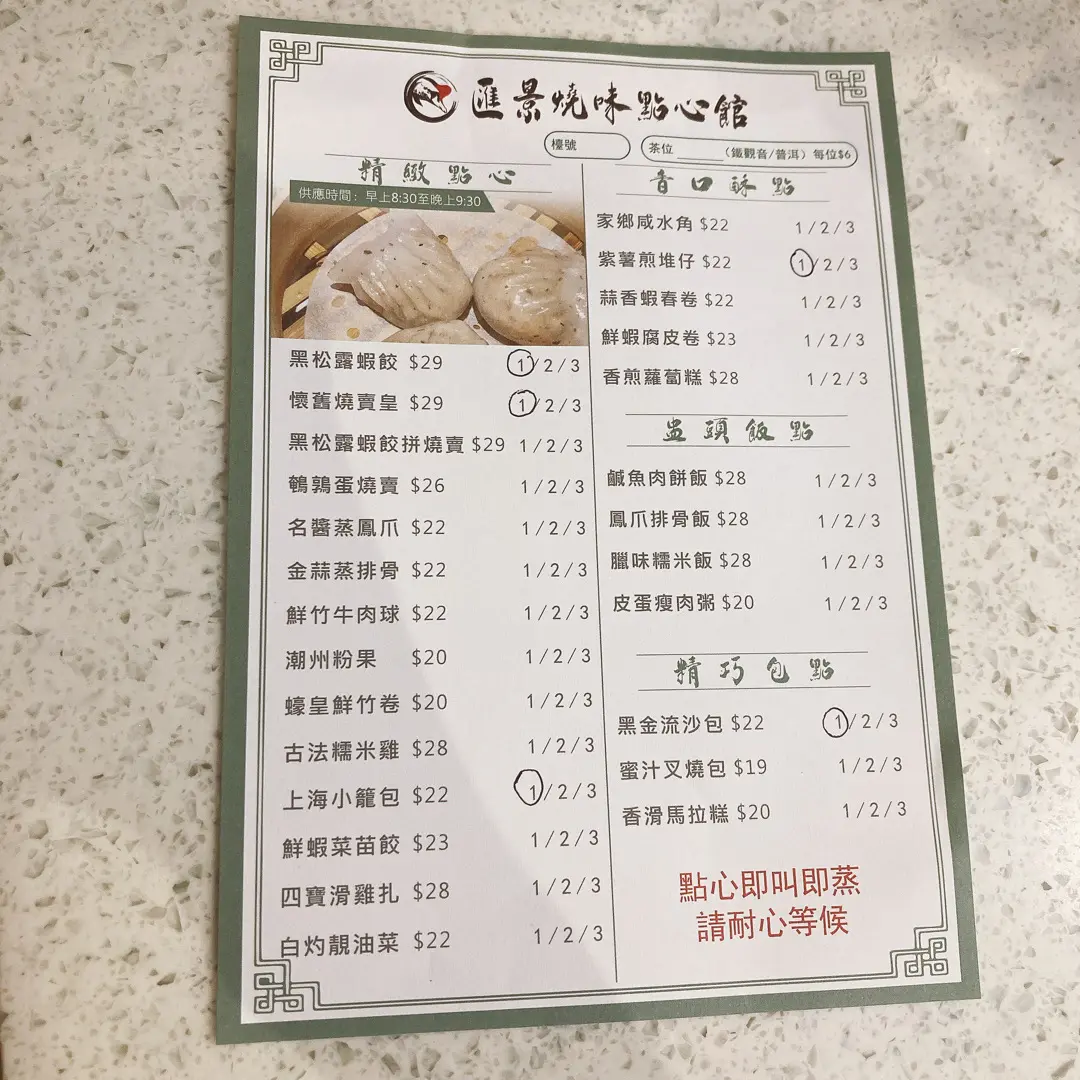 匯景燒味點心館
檯號
茶位______(鐵觀音/普洱) 每位$6
精緻點心
供應時間：早上8:30至晚上9:30
黑松露蝦餃 $29 1/2/3
懷舊燒賣皇 $29 1/2/3
黑松露蝦餃拼燒賣 $29 1/2/3
鵪鶉蛋燒賣 $26 1/2/3
名醬蒸鳳爪 $22 1/2/3
金蒜蒸排骨 $22 1/2/3
鮮竹牛肉球 $22 1/2/3
潮州粉果 $20 1/2/3
蠔皇鮮竹卷 $20 1/2/3
古法糯米雞 $28 1/2/3
上海小籠包 $22 1/2/3
鮮蝦菜苗餃 $23 1/2/3
四寶滑雞扎 $28 1/2/3
白灼靚油菜 $22 1/2/3
香口酥點
家鄉咸水角 $22 1/2/3
紫薯煎堆仔 $22 1/2/3
蒜香蝦春卷 $22 1/2/3
鮮蝦腐皮卷 $23 1/2/3
香煎蘿蔔糕 $28 1/2/3
盅頭飯點
鹹魚肉餅飯 $28 1/2/3
鳳爪排骨飯 $28 1/2/3
臘味糯米飯 $28 1/2/3
皮蛋瘦肉粥 $20 1/2/3
精巧包點
黑金流沙包 $22 1/2/3
蜜汁叉燒包 $19 1/2/3
香滑馬拉糕 $20 1/2/3
點心即叫即蒸
請耐心等候